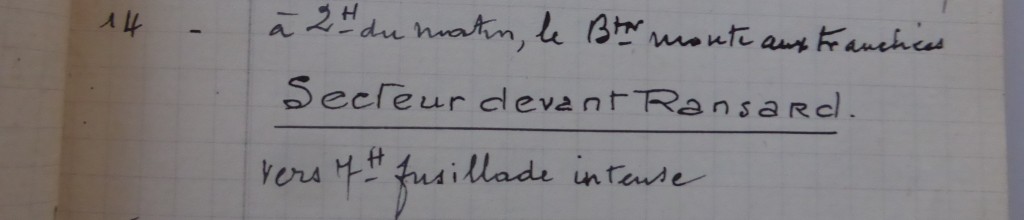 14 - à 2H du matin, le Bton monte aux tranchées
Secteur devant Ransard.
vers 7H fusillade intense